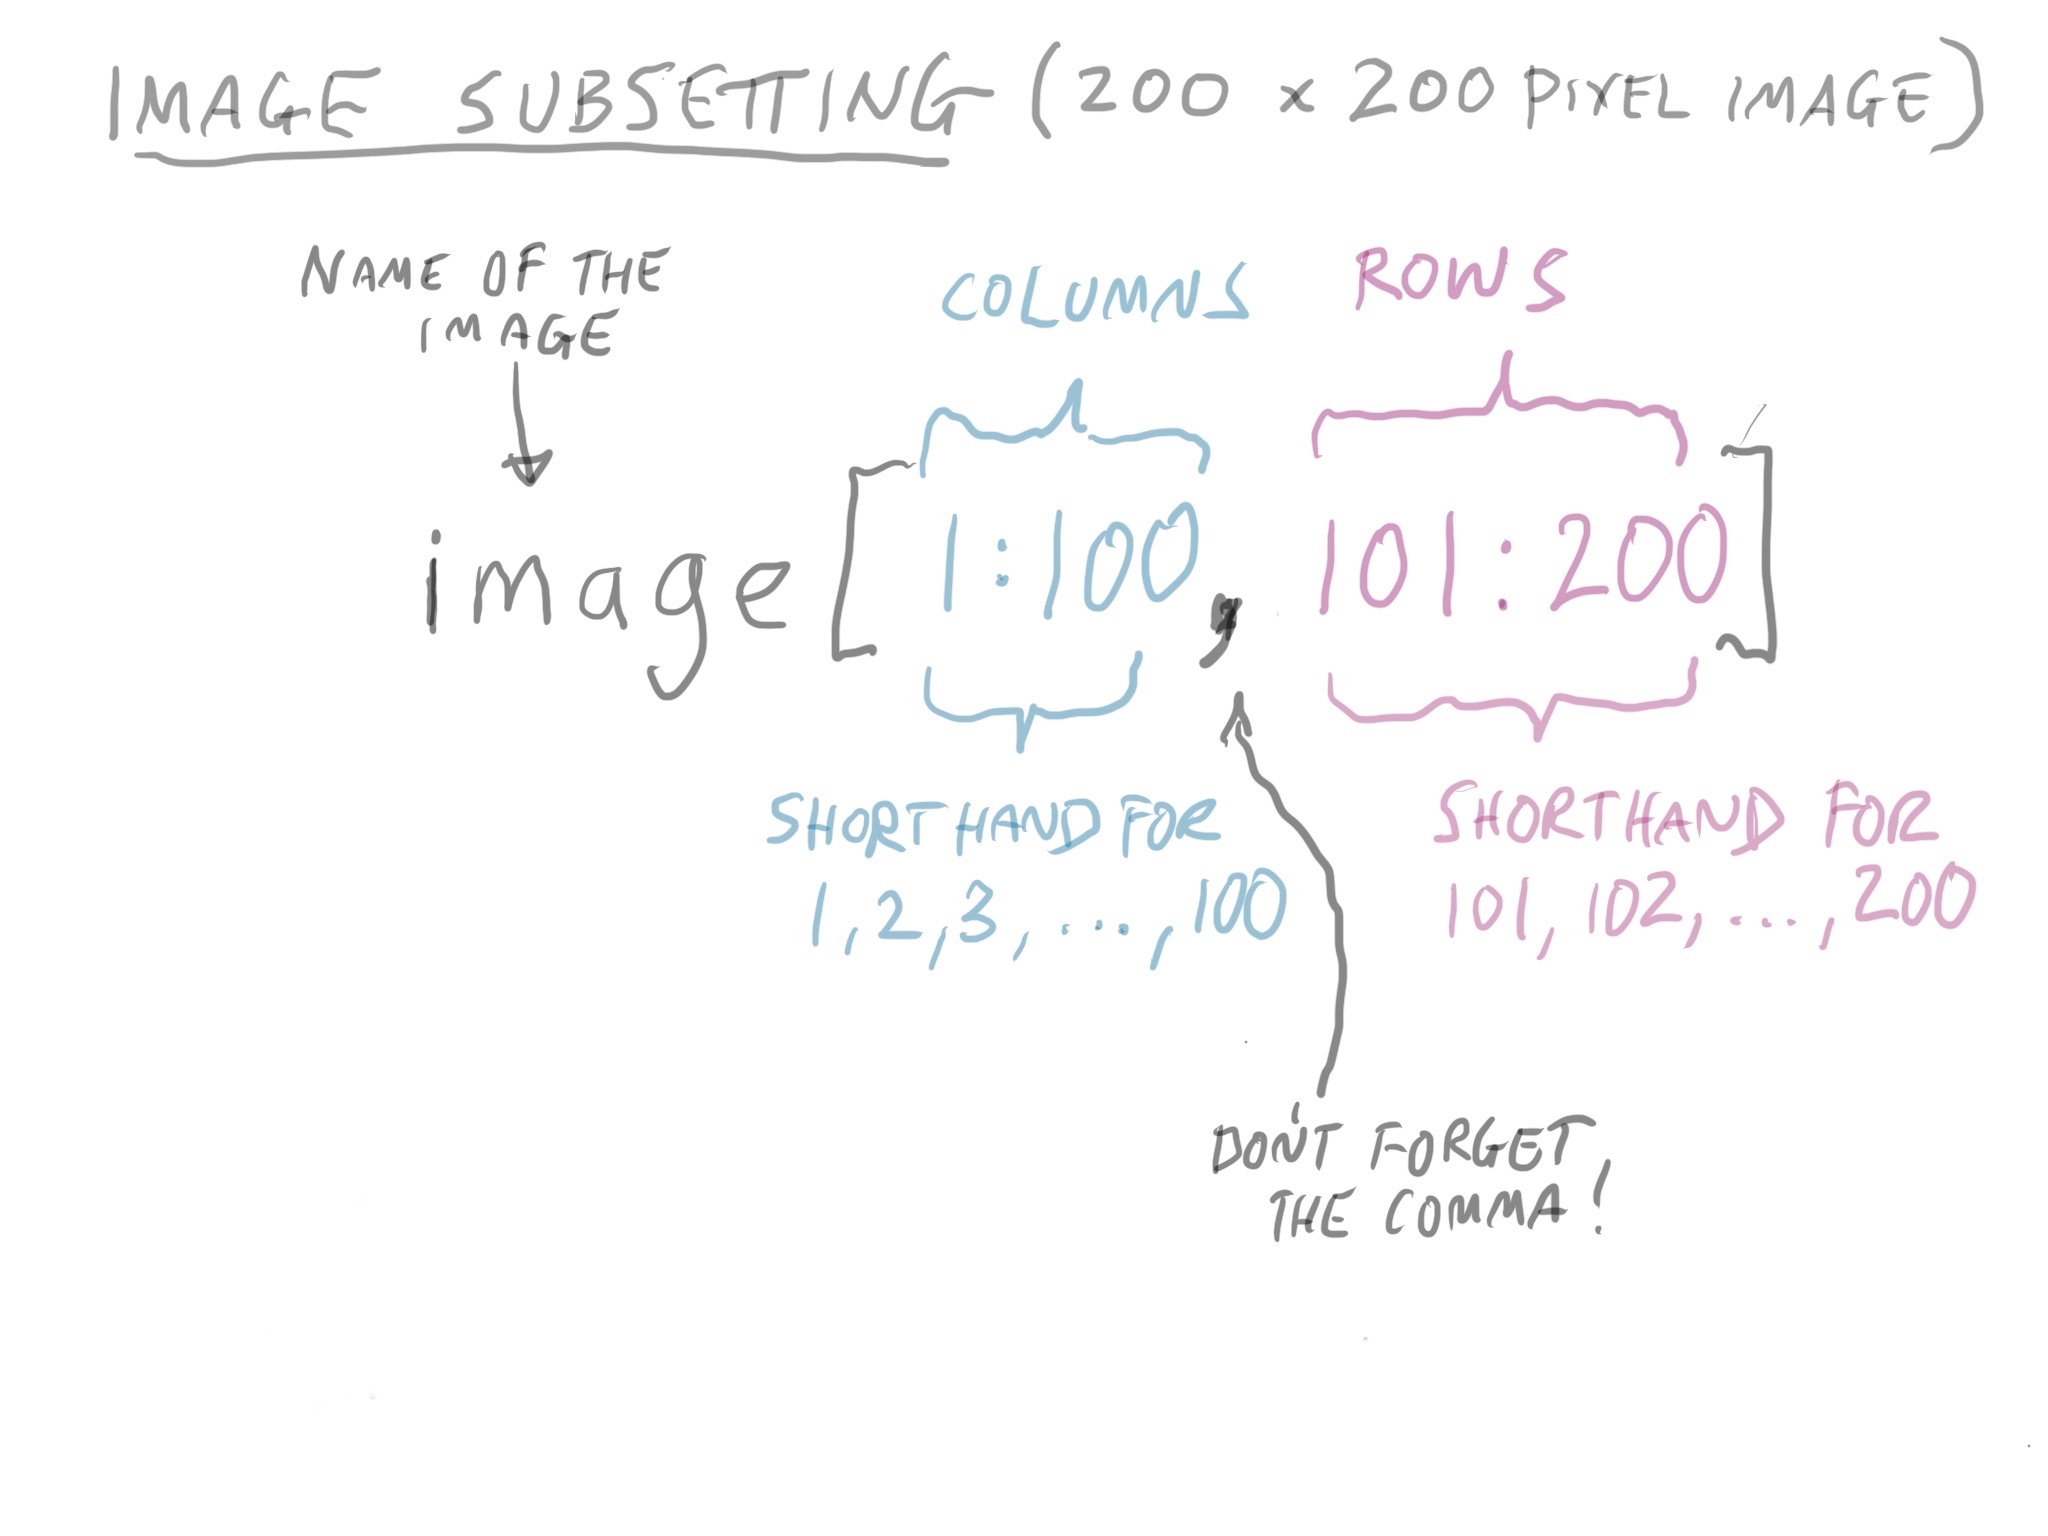 IMAGE SUBSETTING (200 x 200 PIXEL IMAGE)
NAME OF THE
IMAGE
COLUMNS
ROWS
image[1:100, 101:200]
SHORTHAND FOR
1,2,3,...,100
SHORTHAND FOR
101, 102, ..., 200
DON'T FORGET
THE COMMA!